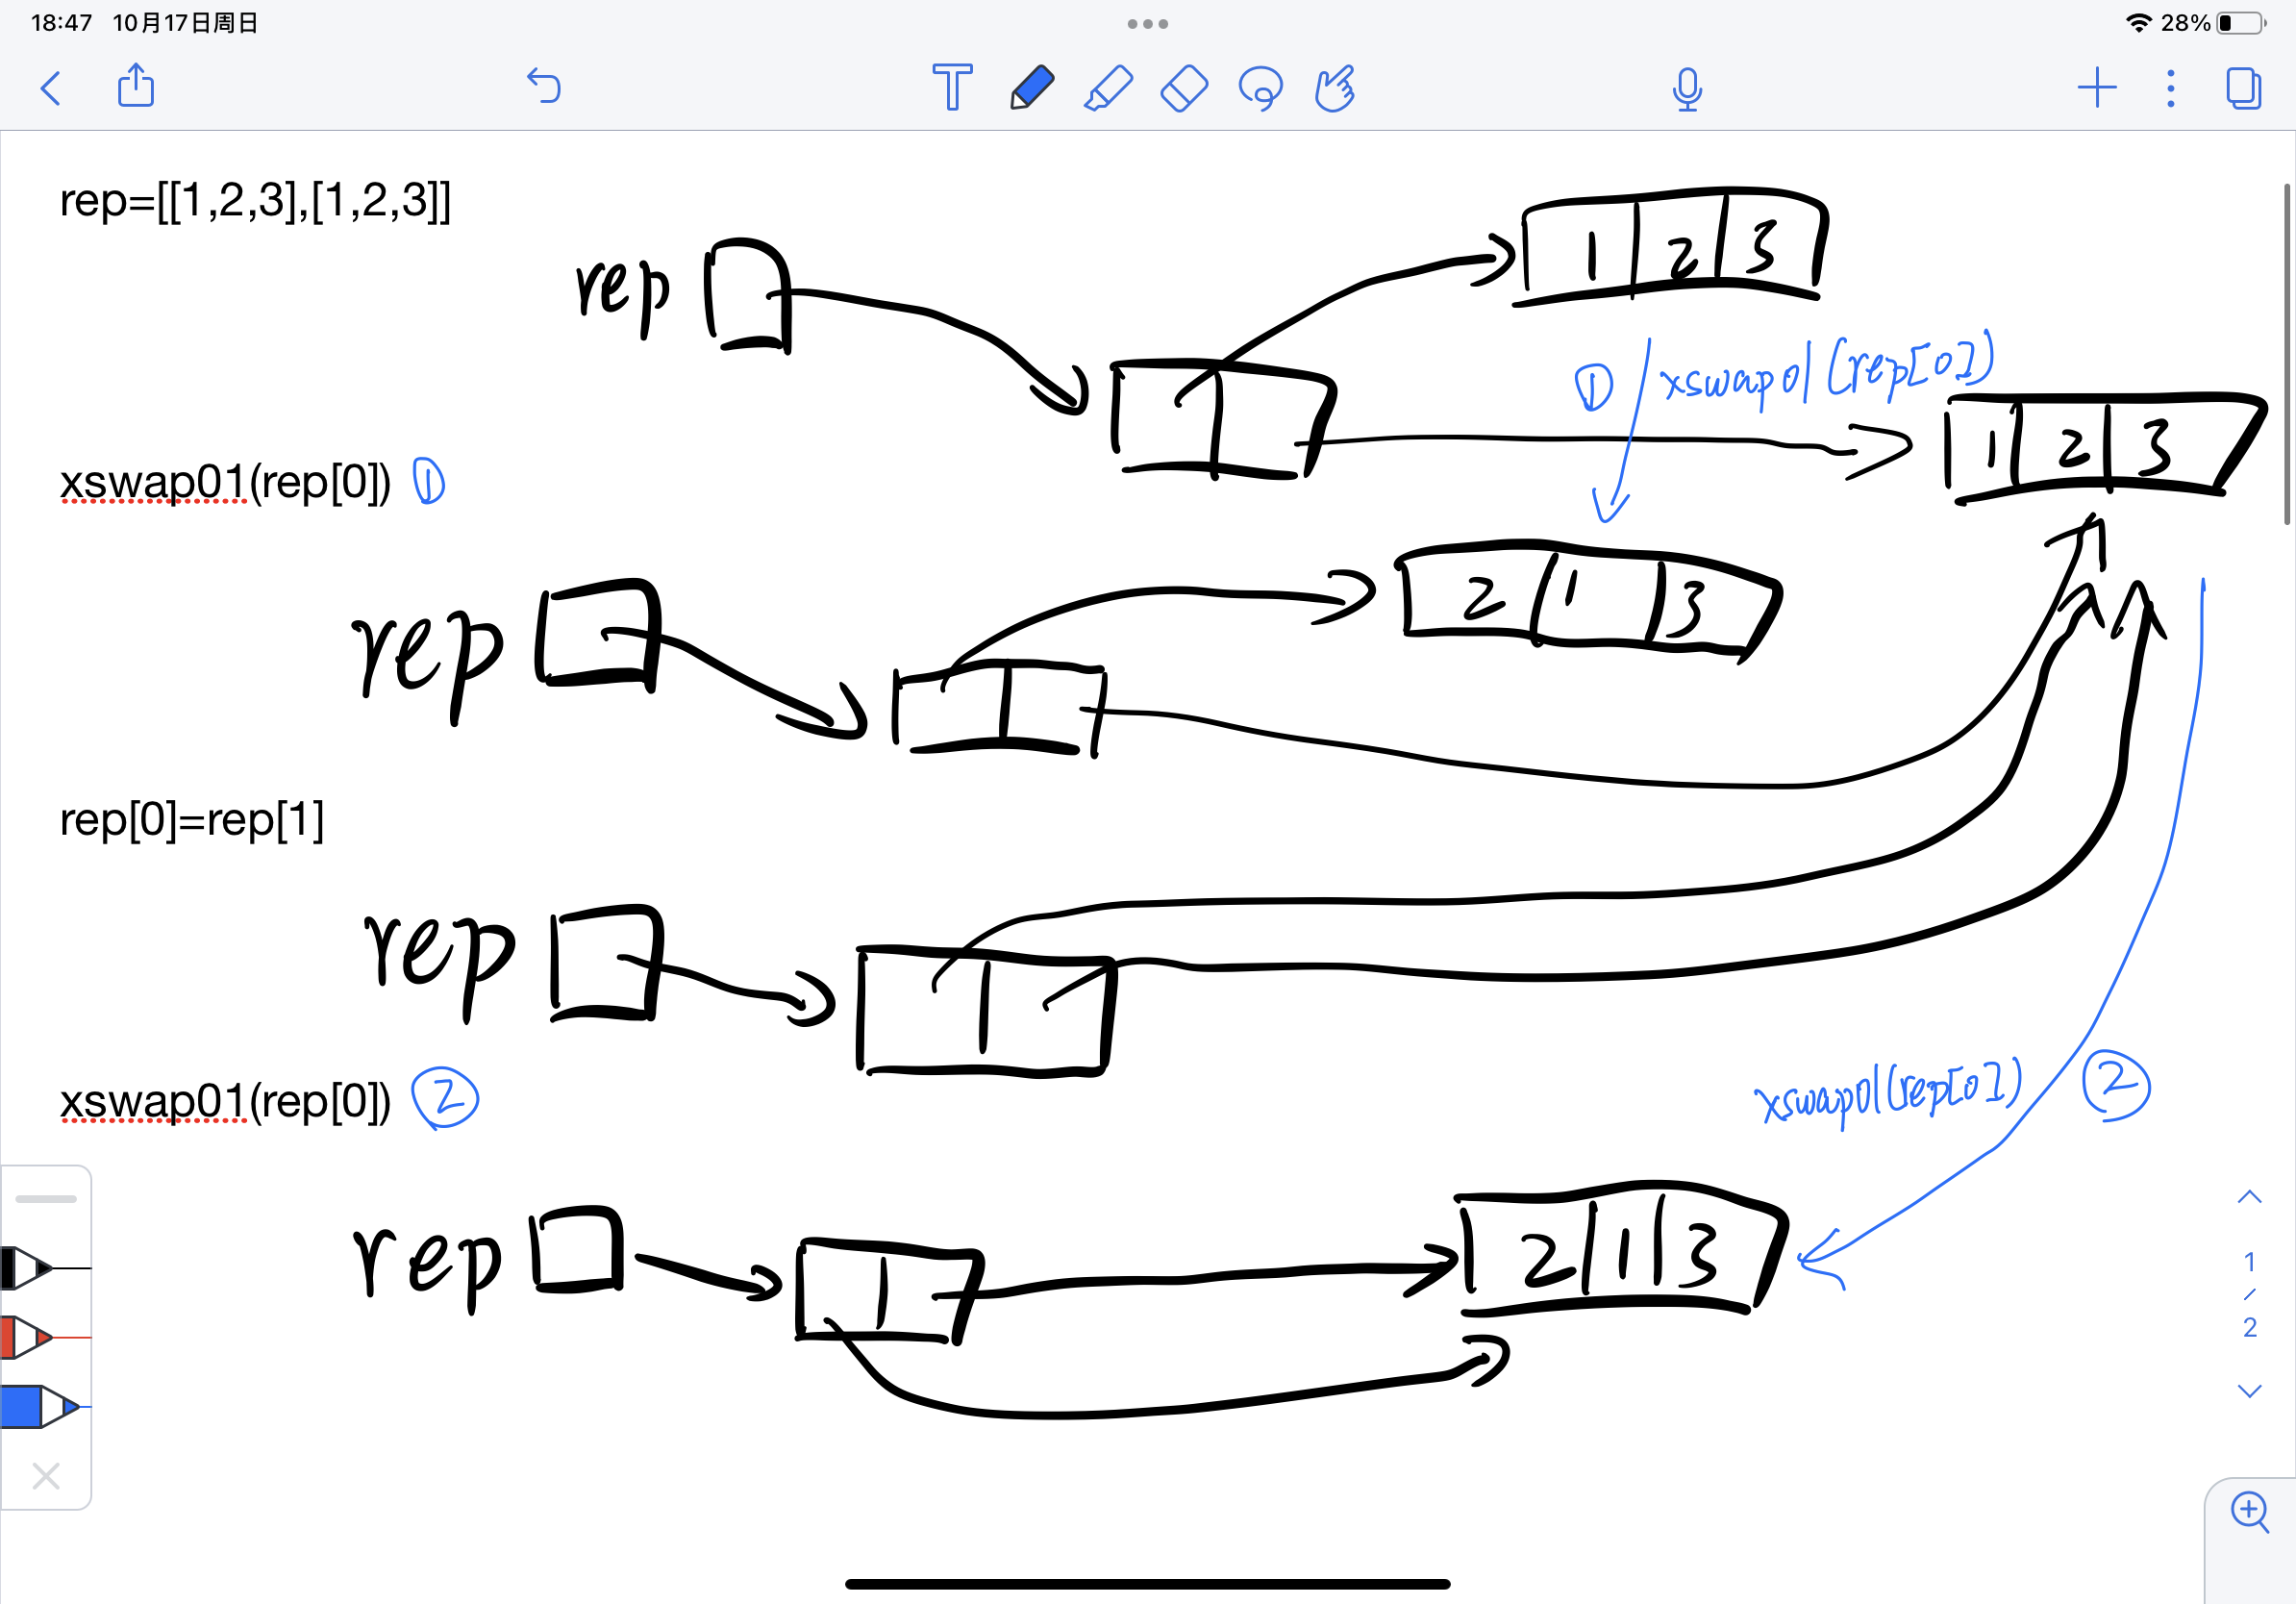 18:47 10月17日周日
28%
rep=[[1,2,3],[1,2,3]]
1 2 3
rep
① xswap01(rep[0])
1 2 3
xswap01(rep[0]) ①
2 1 3
rep
rep[0]=rep[1]
rep
xswap01(rep[0]) ②
xswap01(rep[0]) ②
rep
2 1 3
1
/
2